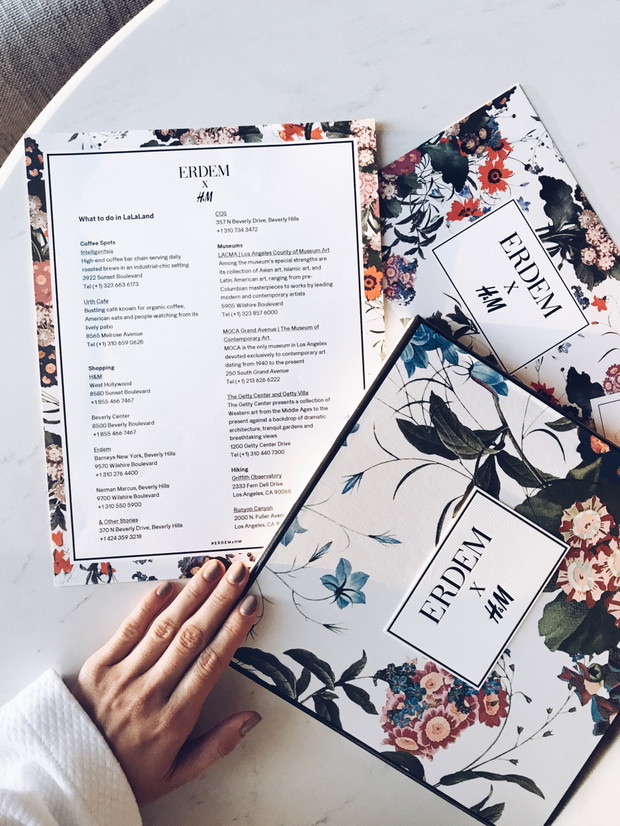 ERDEM
X
H&M
What to do in LaLaLand
Coffee Spots
Intelligentsia
High-end coffee bar chain serving daily
roasted brews in an industrial-chic setting
3922 Sunset Boulevard
Tel (+1) 323 663 6173
Urth Cafe
Bustling café known for organic coffee,
American eats and people watching from its
lively patio
8565 Melrose Avenue
Tel (+1) 310 659 0628
Shopping
H&M
West Hollywood
8580 Sunset Boulevard
+1 855 466 7467
Beverly Center
8500 Beverly Boulevard
+1 855 466 7467
Erdem
Barneys New York, Beverly Hills
9570 Wilshire Boulevard
+1 310 276 4400
Neiman Marcus, Beverly Hills
9700 Wilshire Boulevard
+1 310 550 5900
& Other Stories
370 N Beverly Drive, Beverly Hills
+1 424 359 3218
COS
357 N Beverly Drive, Beverly Hills
+1 310 734 3472
Museums
LACMA | Los Angeles County of Museum Art
Among the museum's special strengths are
its collection of Asian art, Islamic art, and
Latin American art, ranging from pre-
Columbian masterpieces to works by leading
modern and contemporary artists
5905 Wilshire Boulevard
Tel (+1) 323 857 6000
MOCA Grand Avenue | The Museum of
Contemporary Art
MOCA is the only museum in Los Angeles
devoted exclusively to contemporary art
dating from 1940 to the present
250 South Grand Avenue
Tel (+1) 213 626 6222
The Getty Center and Getty Villa
The Getty Center presents a collection of
Western art from the Middle Ages to the
present against a backdrop of dramatic
architecture, tranquil gardens and
breathtaking views
1200 Getty Center Drive
Tel (+1) 310 440 7300
Hiking
Griffith Observatory
2333 Fern Dell Drive
Los Angeles, CA 90068
Runyon Canyon
2000 N. Fuller Aven
Los Angeles, CA 9
#ERDEMxHM
ERDEM
X
H&M
ERDEM
X
H&M